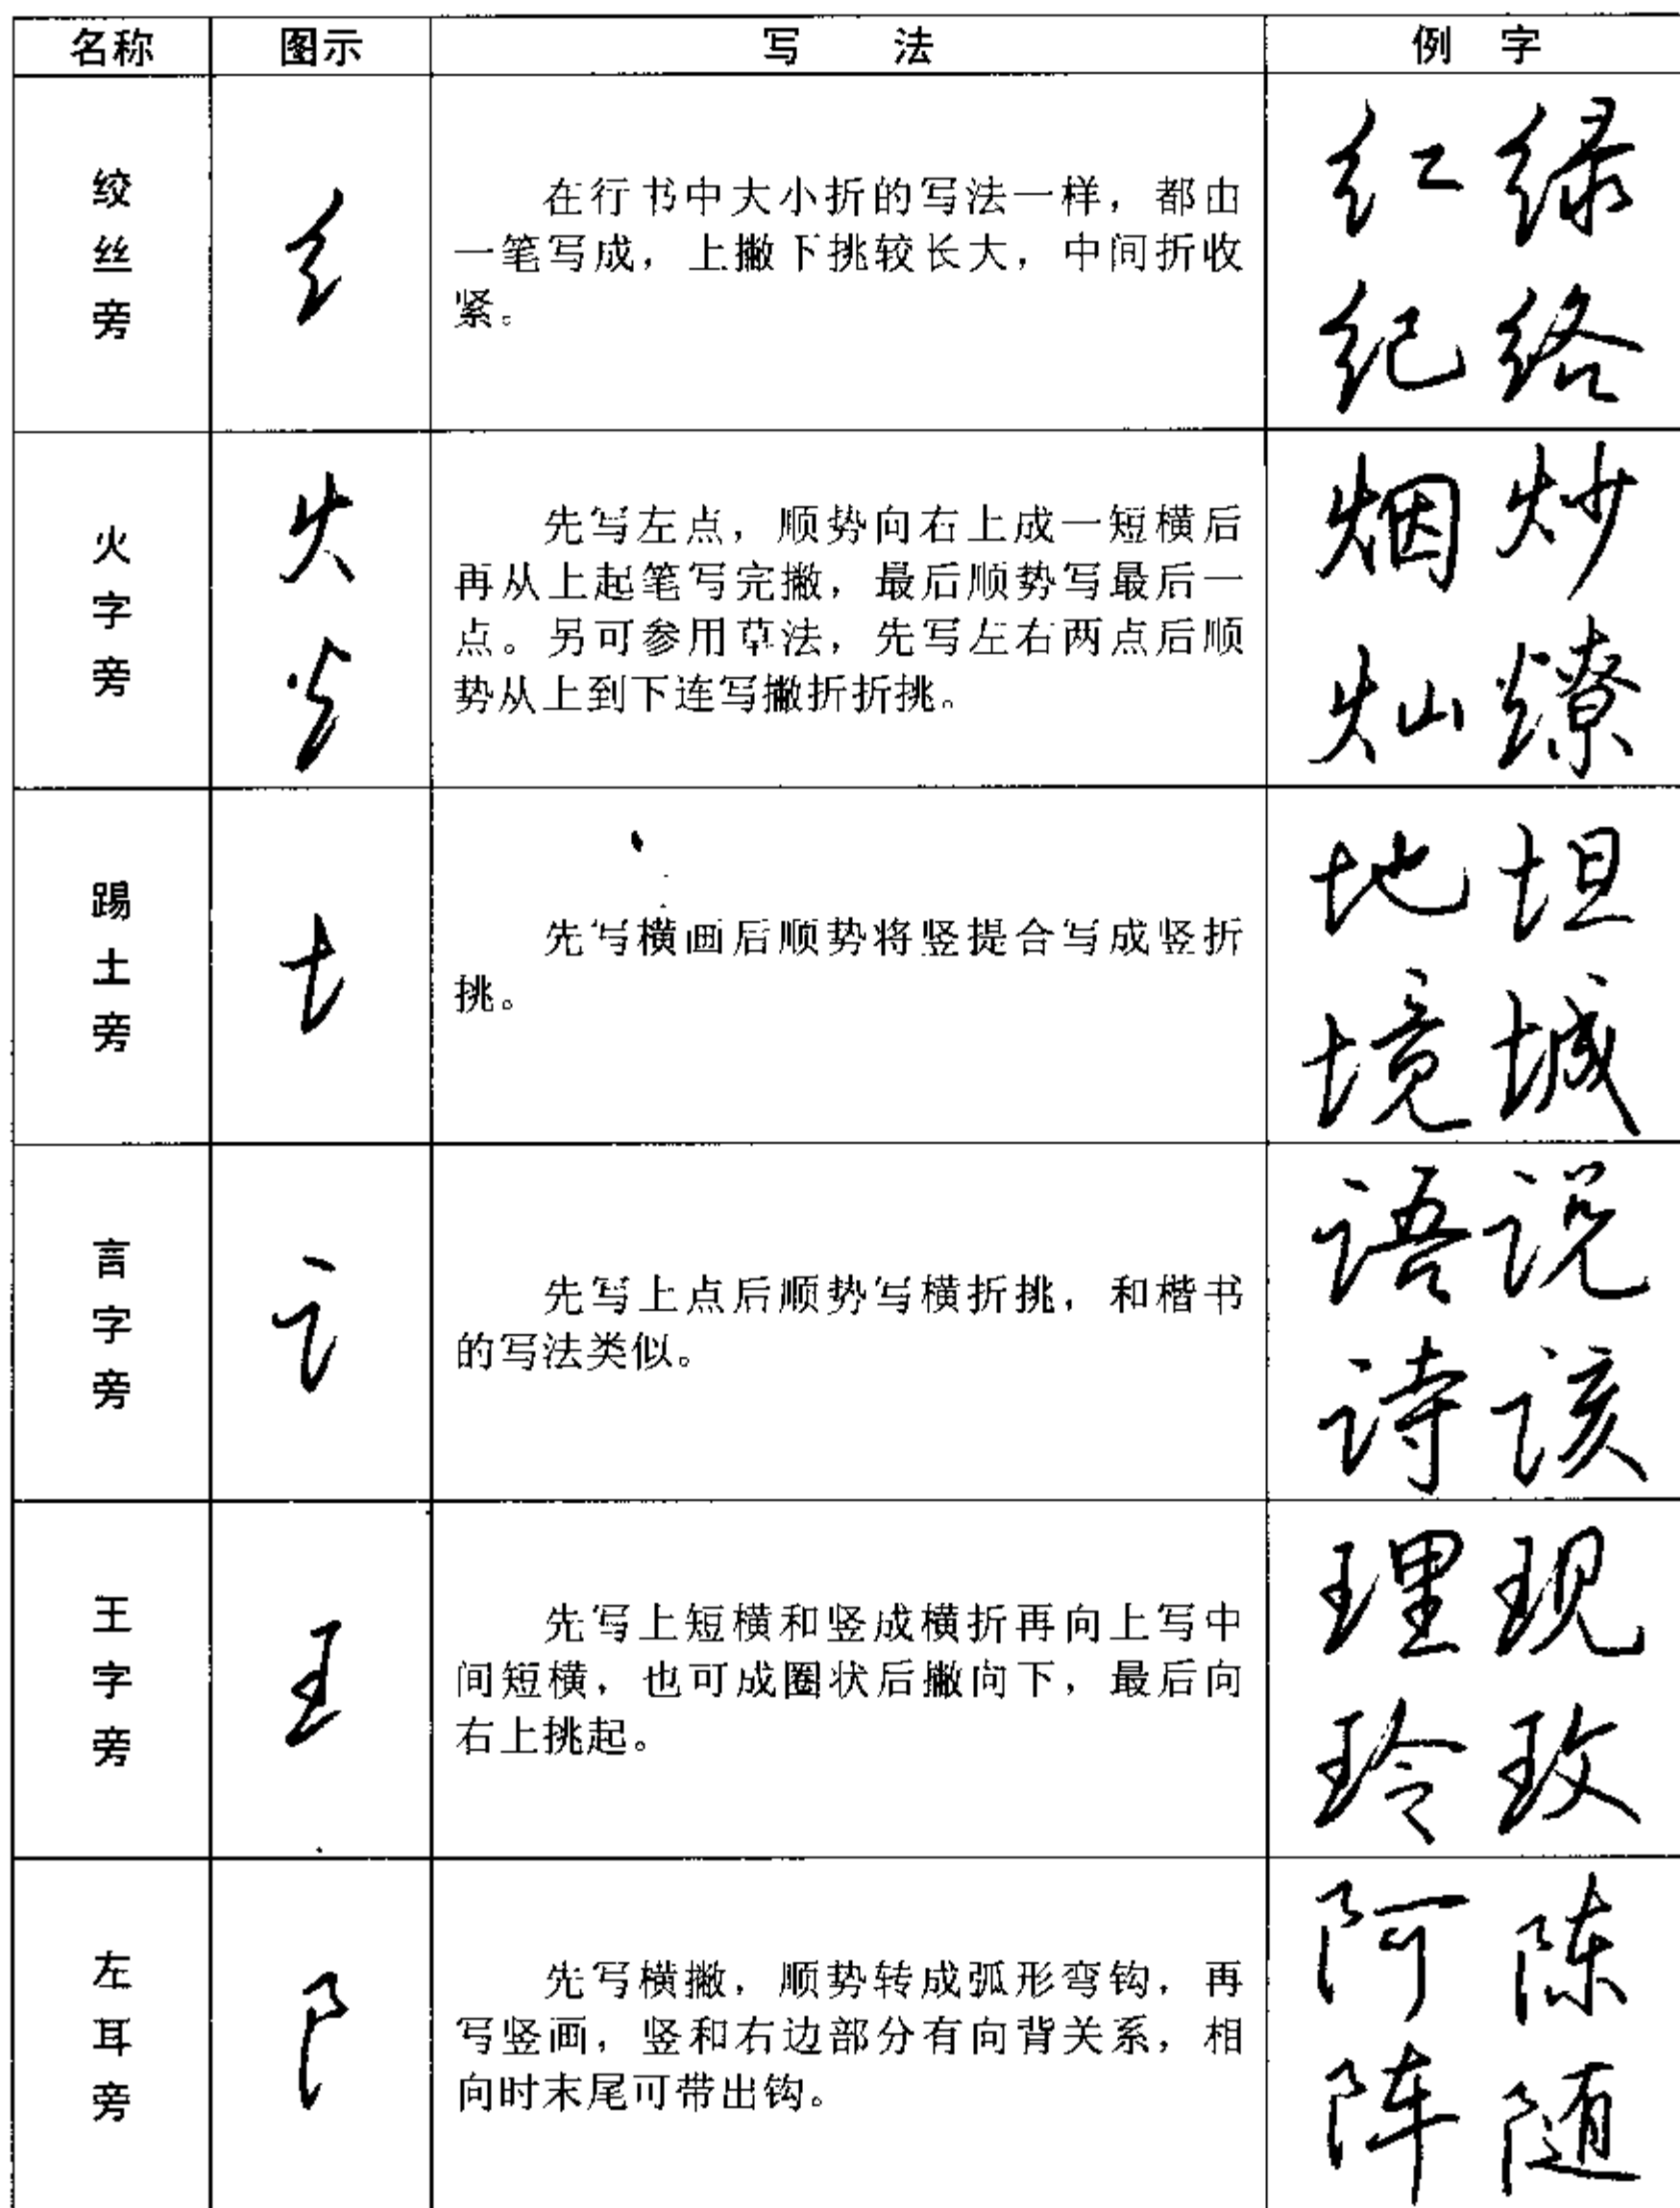 名称 图示 写 法 例 字
绞丝旁
纟
在行书中大小折的写法一样，都由
一笔写成，上撇下挑较长大，中间折收
紧。
红 绿
纪 络
火字旁
火
先写左点，顺势向右上成一短横后
再从上起笔写完撇，最后顺势写最后一
点。另可参用草法，先写左右两点后顺
势从上到下连写撇折折挑。
烟 炒
灿 燎
踢土旁
土
先写横画后顺势将竖提合写成竖折
挑。
地 坦
境 城
言字旁
讠
先写上点后顺势写横折挑，和楷书
的写法类似。
语 说
诗 该
王字旁
王
先写上短横和竖成横折再向上写中
间短横，也可成圈状后撇向下，最后向
右上挑起。
理 现
玲 玫
左耳旁
阝
先写横撇，顺势转成弧形弯钩，再
写竖画，竖和右边部分有向背关系，相
向时末尾可带出钩。
阿 陈
阵 随